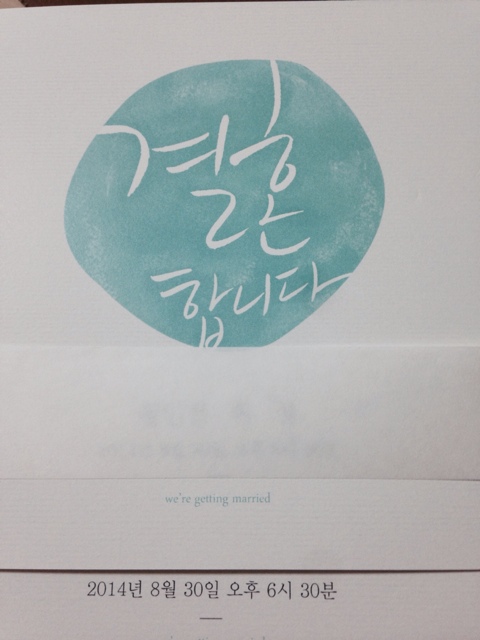 결혼
합니다
we're getting married
2014년 8월 30일 오후 6시 30분